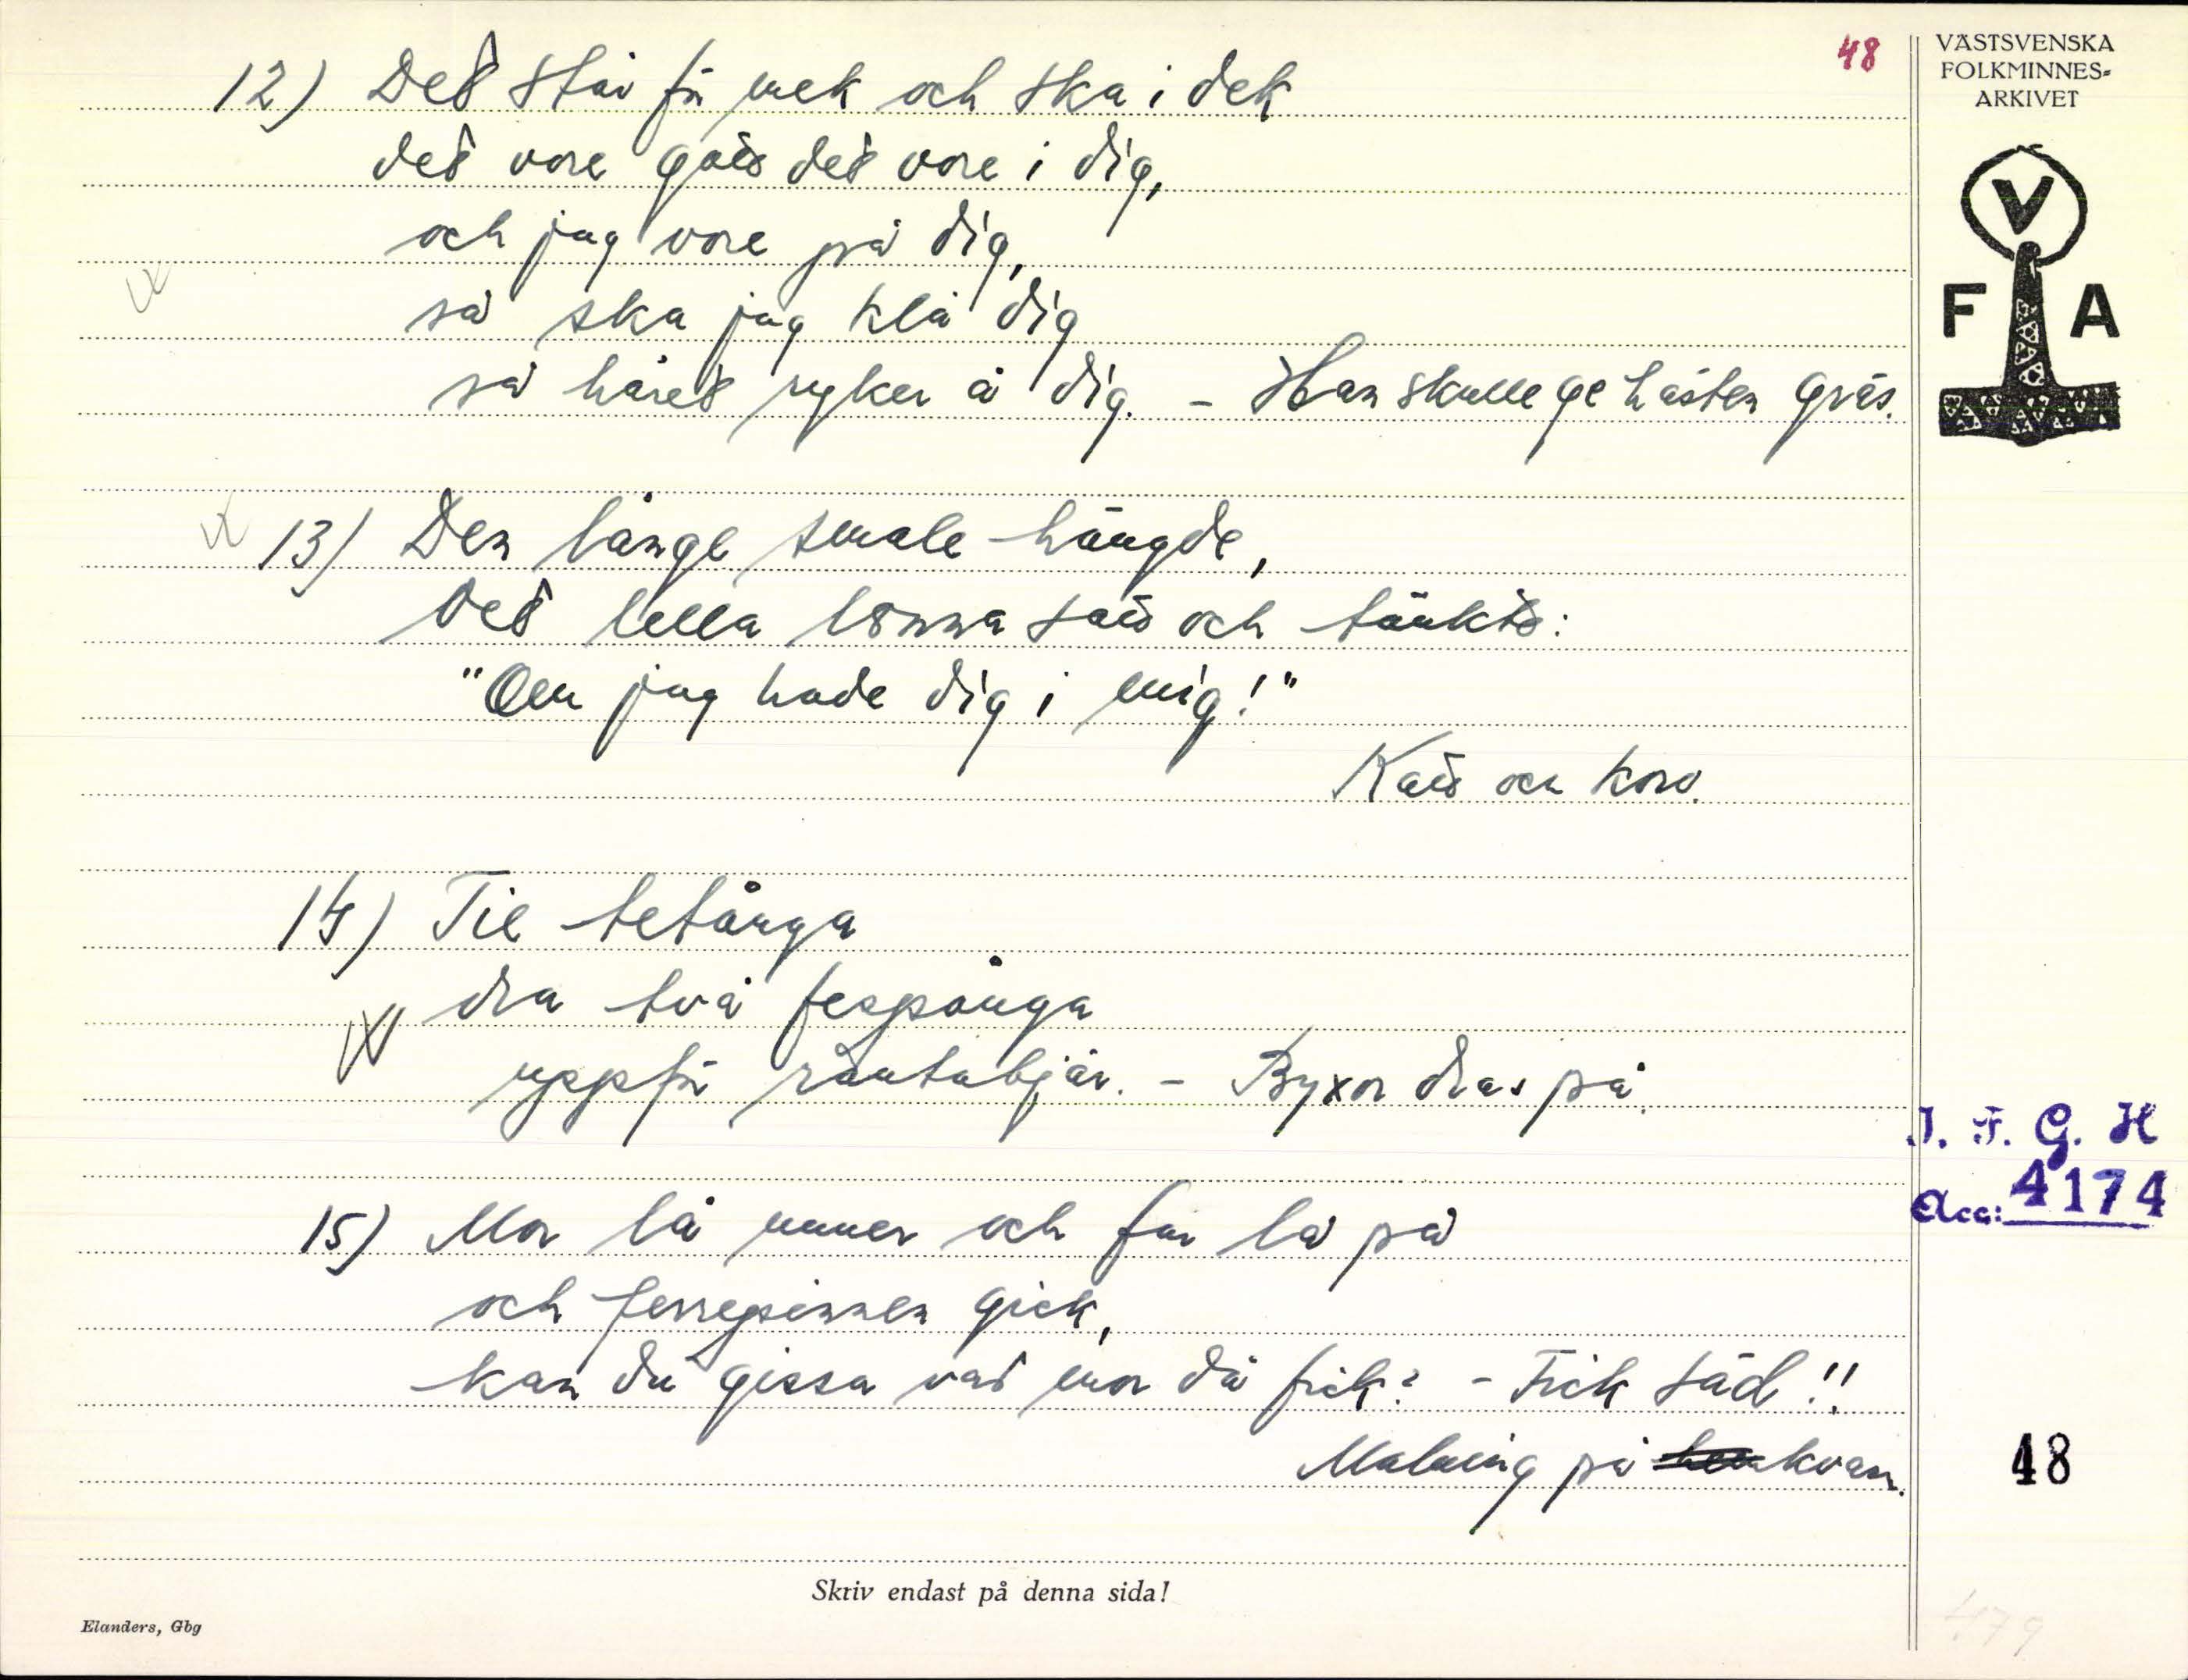 48
VÄSTSVENSKA
FOLKMINNES-
ARKIVET
V
F A
12) Det står för mek och ska i dek
det vore gått det vore i dig,
och jag vore på dig,
så ska jag klå dig
så håret ryker å dig. - Han skulle ge hästen gräs.
13) Den långe smale hängde,
Det lella lönna satt och tänkte:
"Om jag hade dig i mig!"
Katt och korv.
14) Tie tetånga
dra två fespånga
uppför råntabjär. - Byxor dras på.
I. F. G. H
Acc: 4174
15) Mor lå unner och far lå på
och ferrepinnen gick,
kan du gissa vad mor då fick? - Fick säd!!
Malning på kvarn.
48
Skriv endast på denna sida!
Elanders, Gbg
479